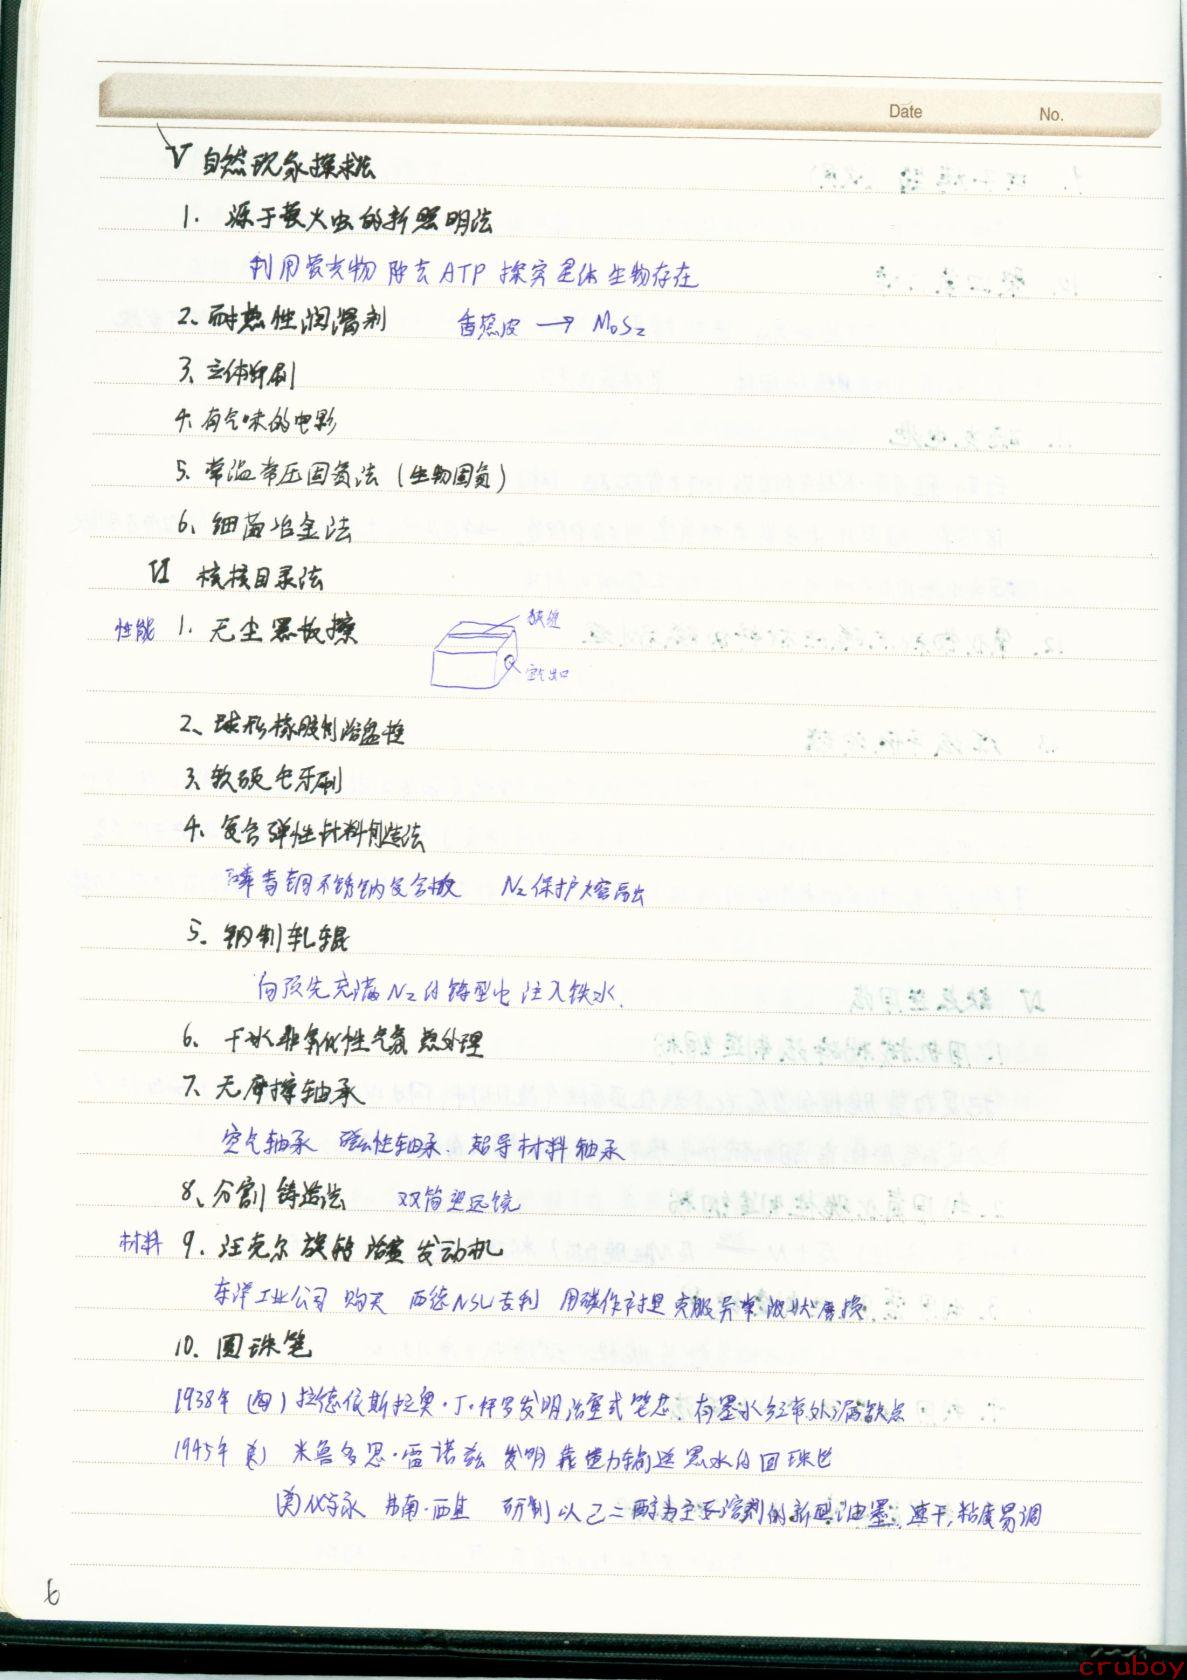 Date No.
V 自然现象探求法
1. 源于萤火虫的新照明法
利用荧光物 除去 ATP 探究星体生物存在
2、耐热性润滑剂 香蕉皮 → MoS₂
3、立体印刷
4、有气味的电影
5、常温常压固氮法 (生物固氮)
6、细菌冶金法
VI 核核目录法
性能 1. 无尘黑板擦 狭缝
空气出口
2、球形橡胶制浴盆栓
3、软硬毛牙刷
4、复合弹性材料制造法
磷青铜不锈钢复合板 N₂保护
5、钢制轧辊
向预先充满N₂的铸型中注入铁水.
6、干冰非氧化性气氛热处理
7、无摩擦轴承
空气轴承 磁性轴承. 超导材料轴承
8、分割铸造法 双筒望远镜
材料 9、汪克尔旋转活塞发动机
东洋工业公司 购买 西德NSU专利 用碳作衬里克服异常波状磨损
10. 圆珠笔
1938年 拉德依斯拉奥·J·伊罗发明活塞式笔芯、有墨水经常外漏缺点
1945年 (美) 米鲁多思·雷诺兹 发明 靠重力输送墨水的圆珠笔
(美)化学家 弗南·西 研制以乙二醇为主要溶剂的新型油墨, 速干,粘度易调
6
cruboy